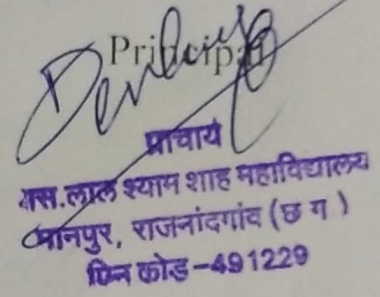 Principal
प्राचार्य
शास. लाल श्याम शाह महाविद्यालय
मानपुर, राजनांदगांव (छ ग )
पिन कोड -491229